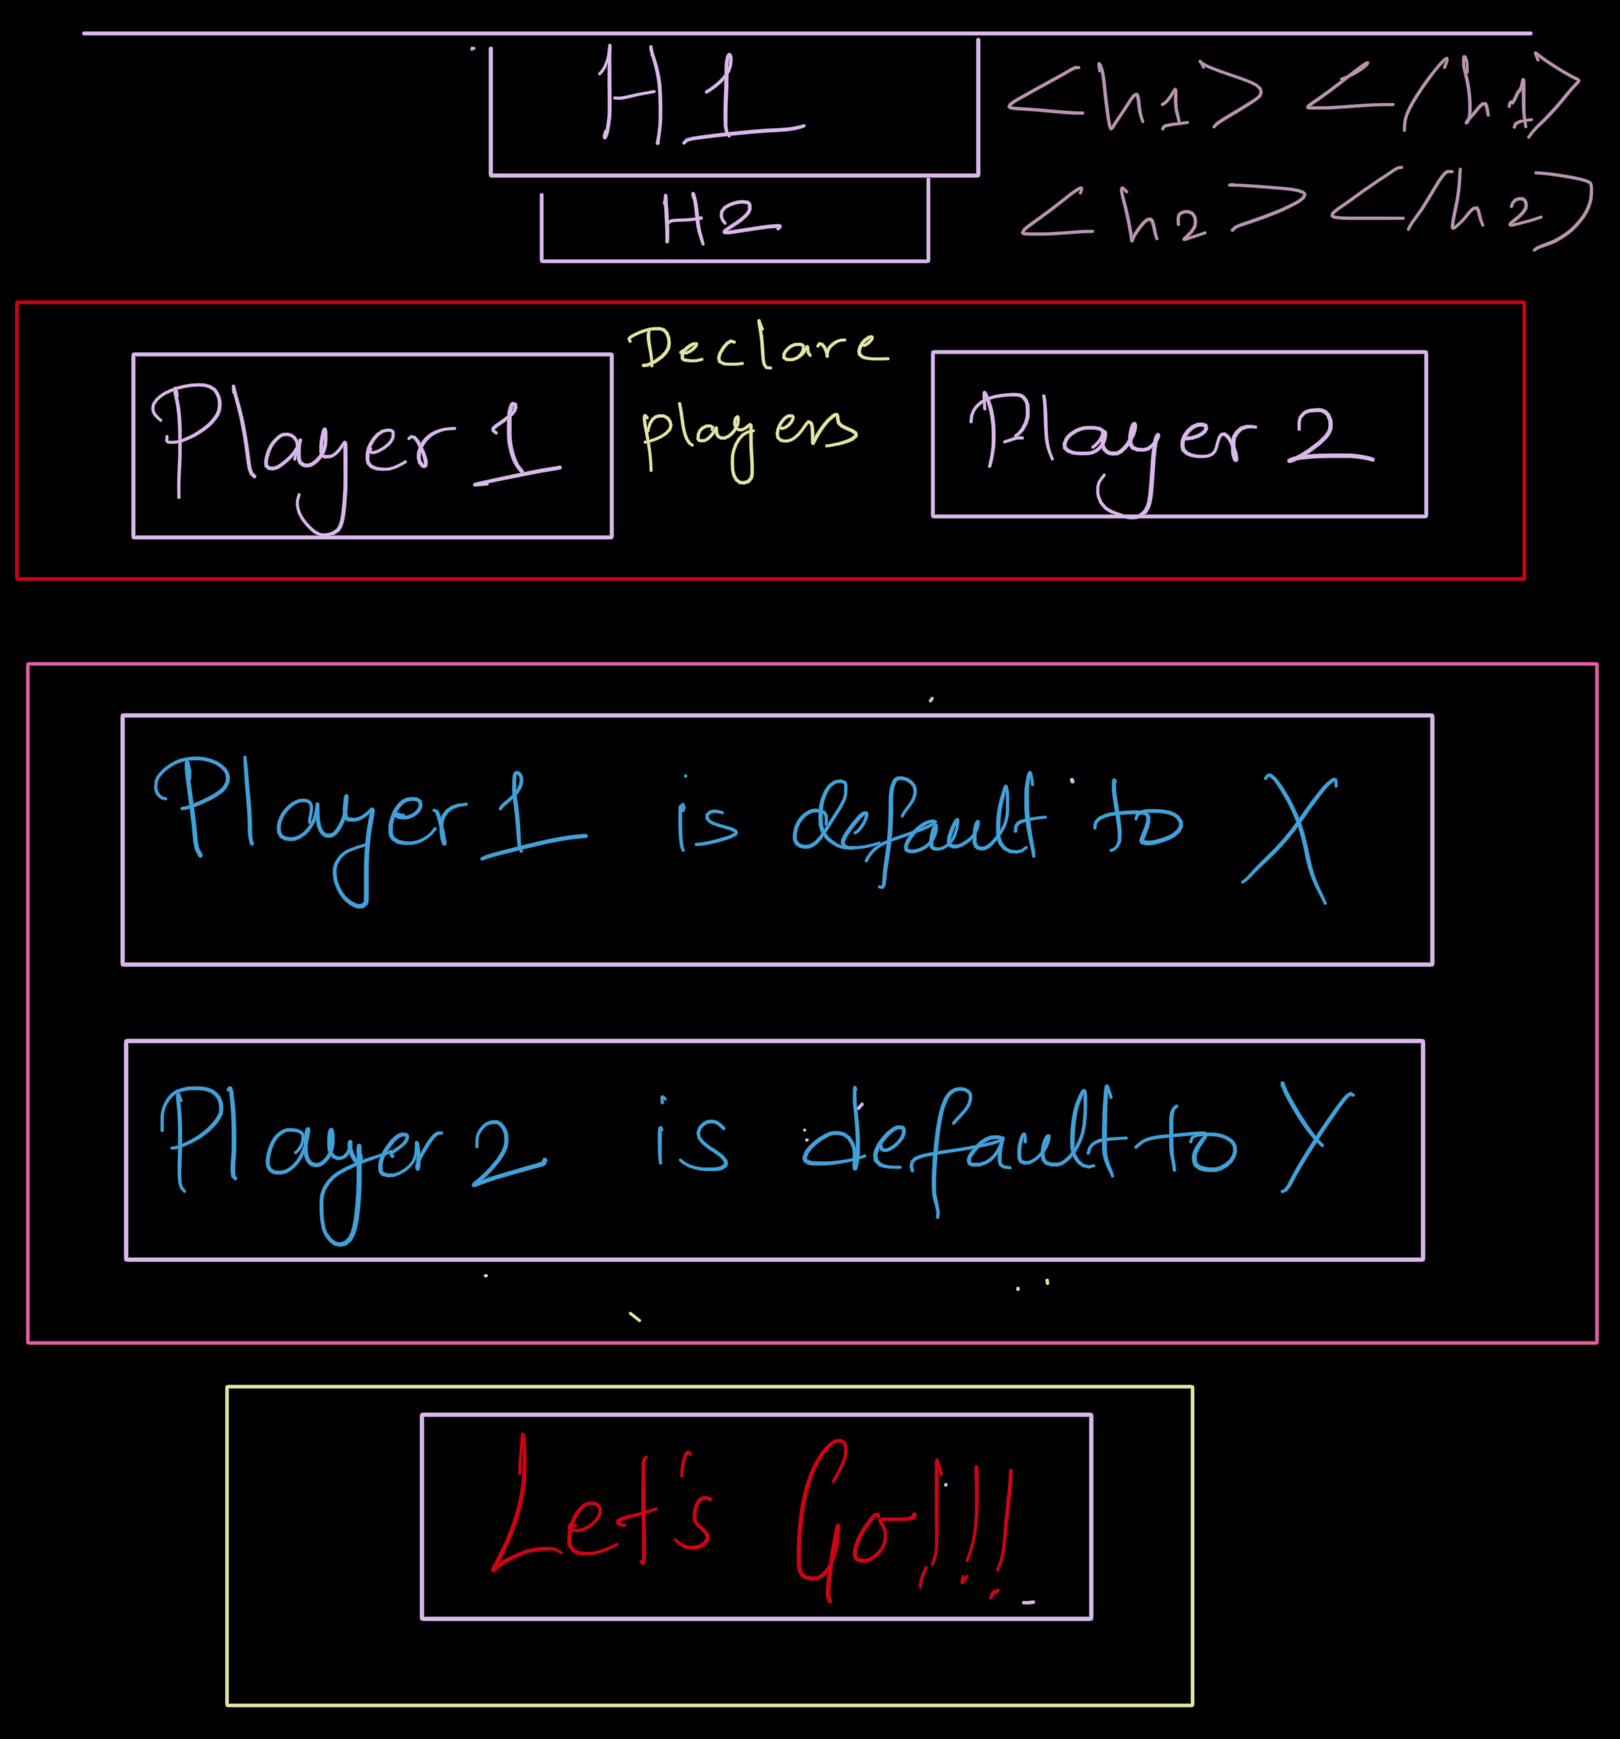 H1 <h1> </h1>
H2 <h2> </h2>
Declare
Player 1 players Player 2
Player 1 is default to X
Player 2 is default to Y
Let's Go!!!